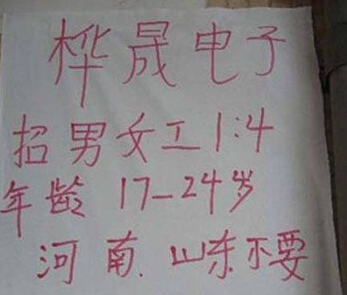 桦晟电子
招男女工1:4
年龄 17-24岁
河南.山东不要